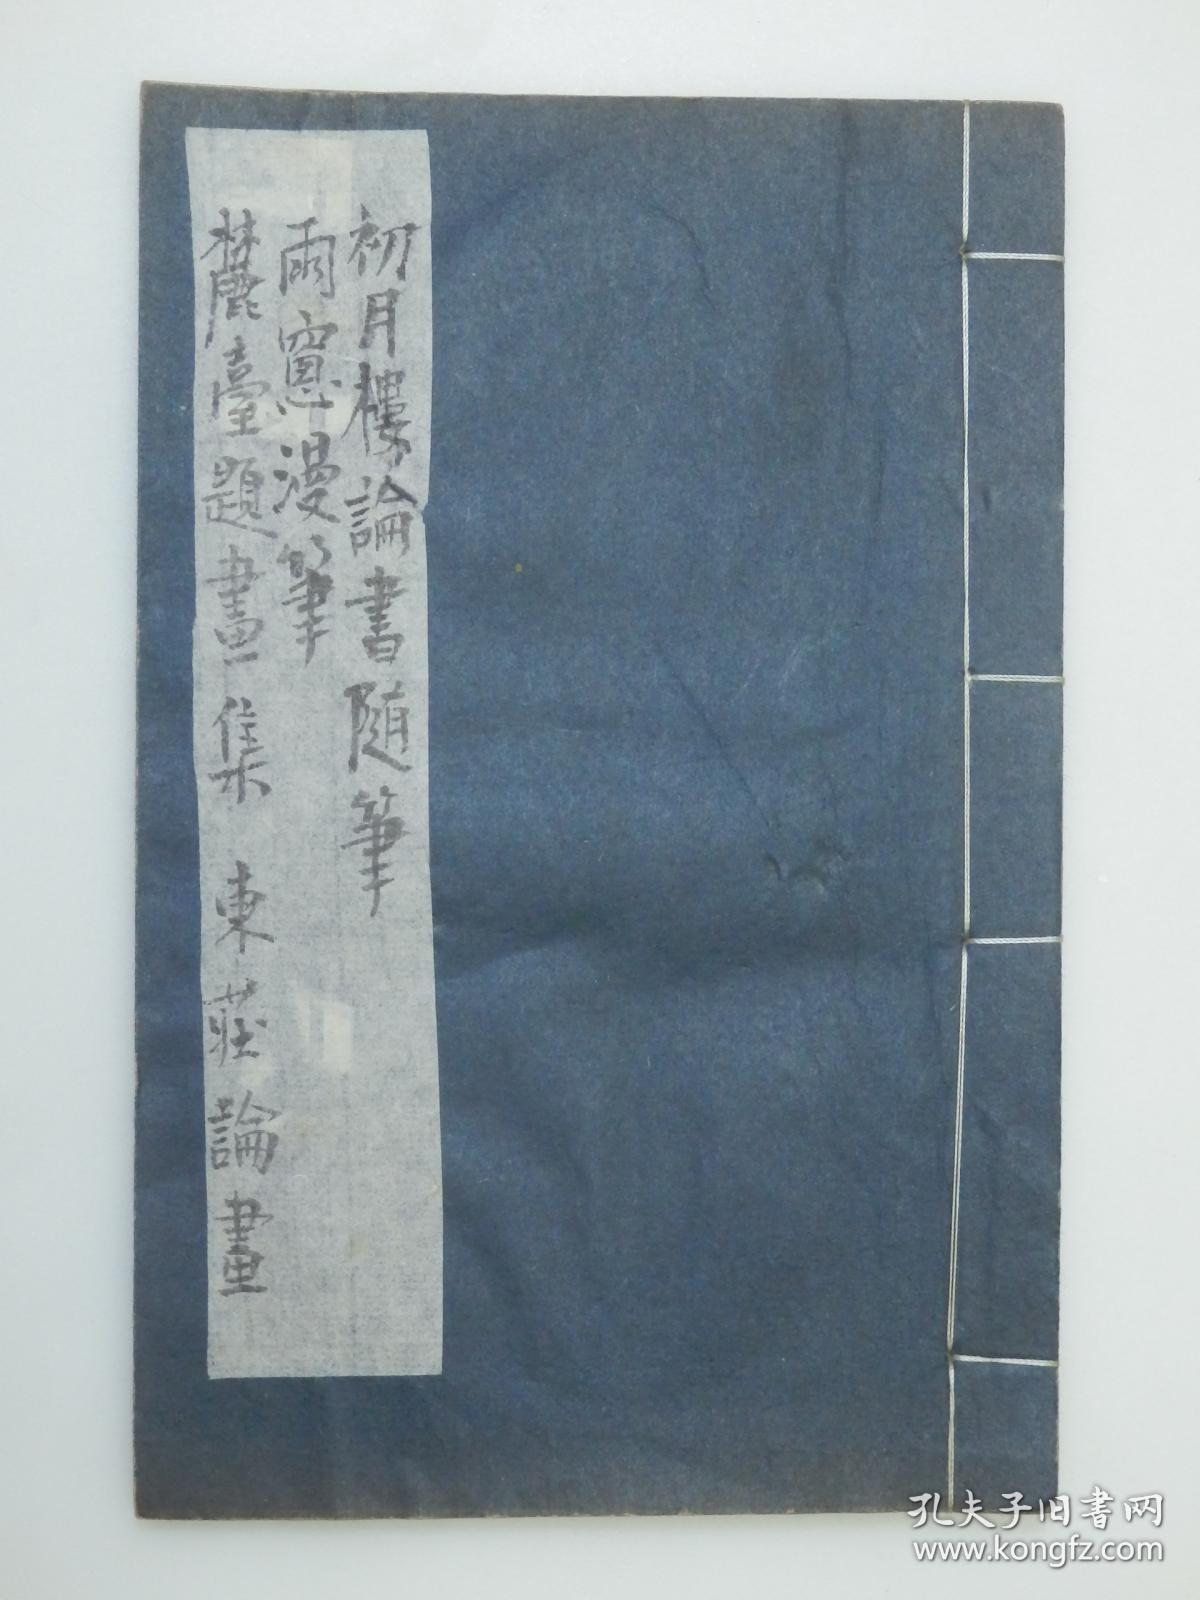 初月樓論書随筆
雨窻漫筆
麓臺題畫集 東莊論畫
孔夫子旧书网
www.kongfz.com